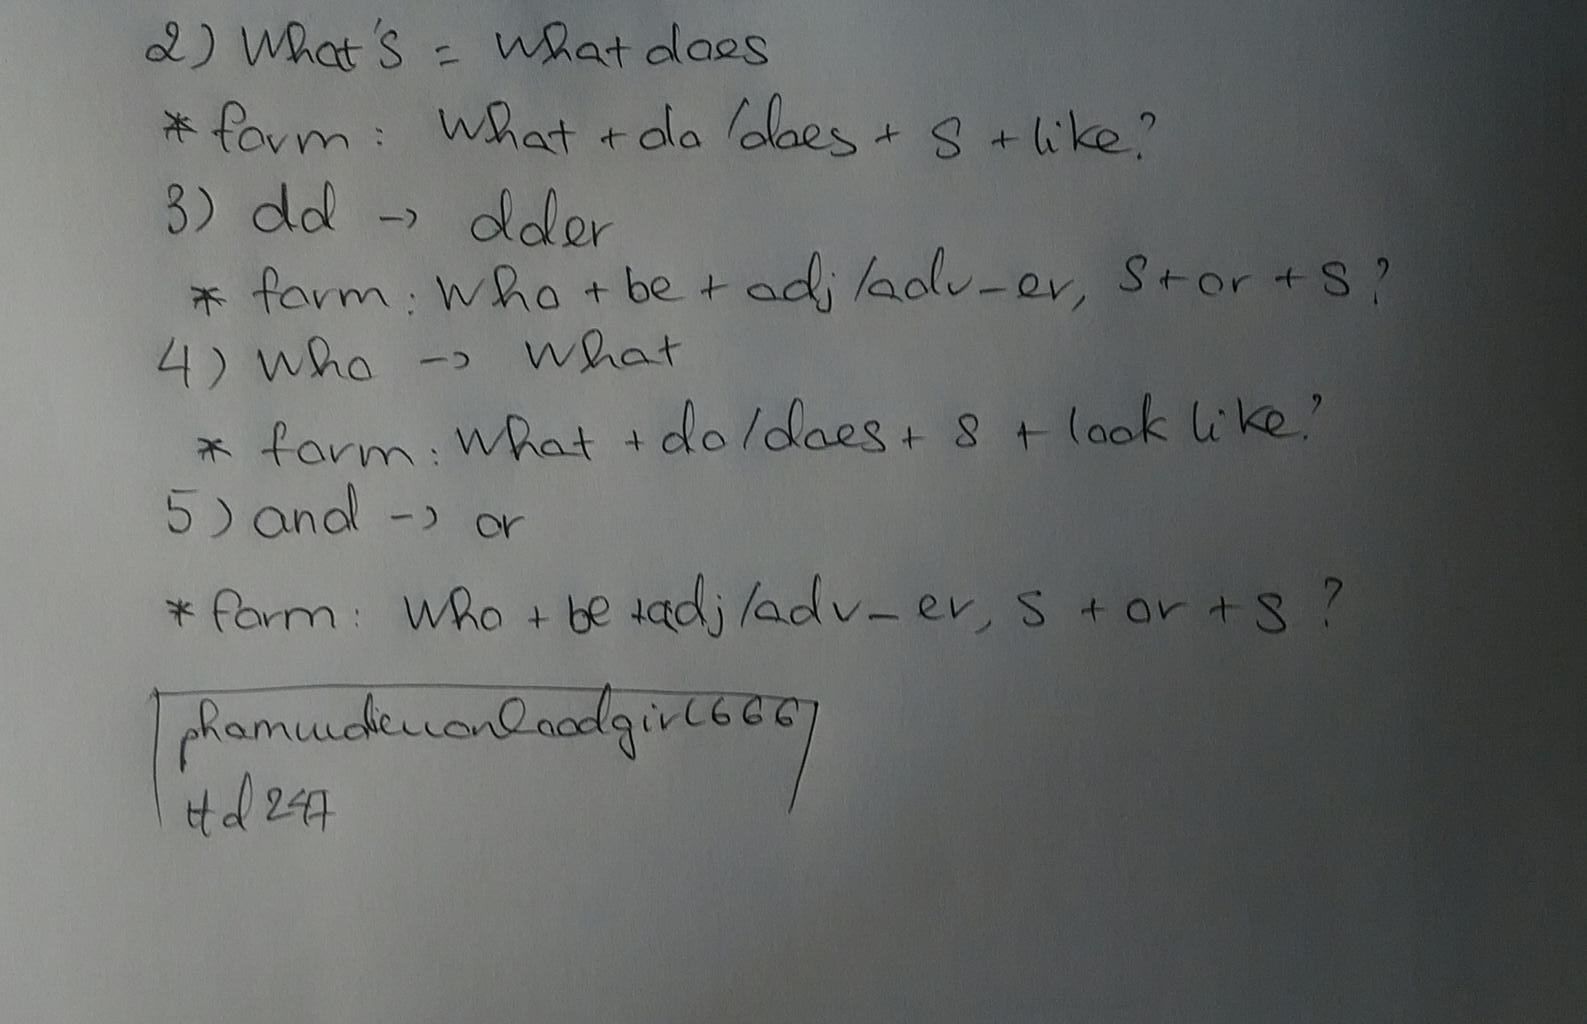 2) What's = what does
* form: What + do/does + S + like?
3) old -> older
* form: Who + be + adj/adv-er, S + or + S?
4) Who -> What
* form: What + do/does + S + look like?
5) and -> or
* form: Who + be + adj/adv-er, S + or + S?
Hd247